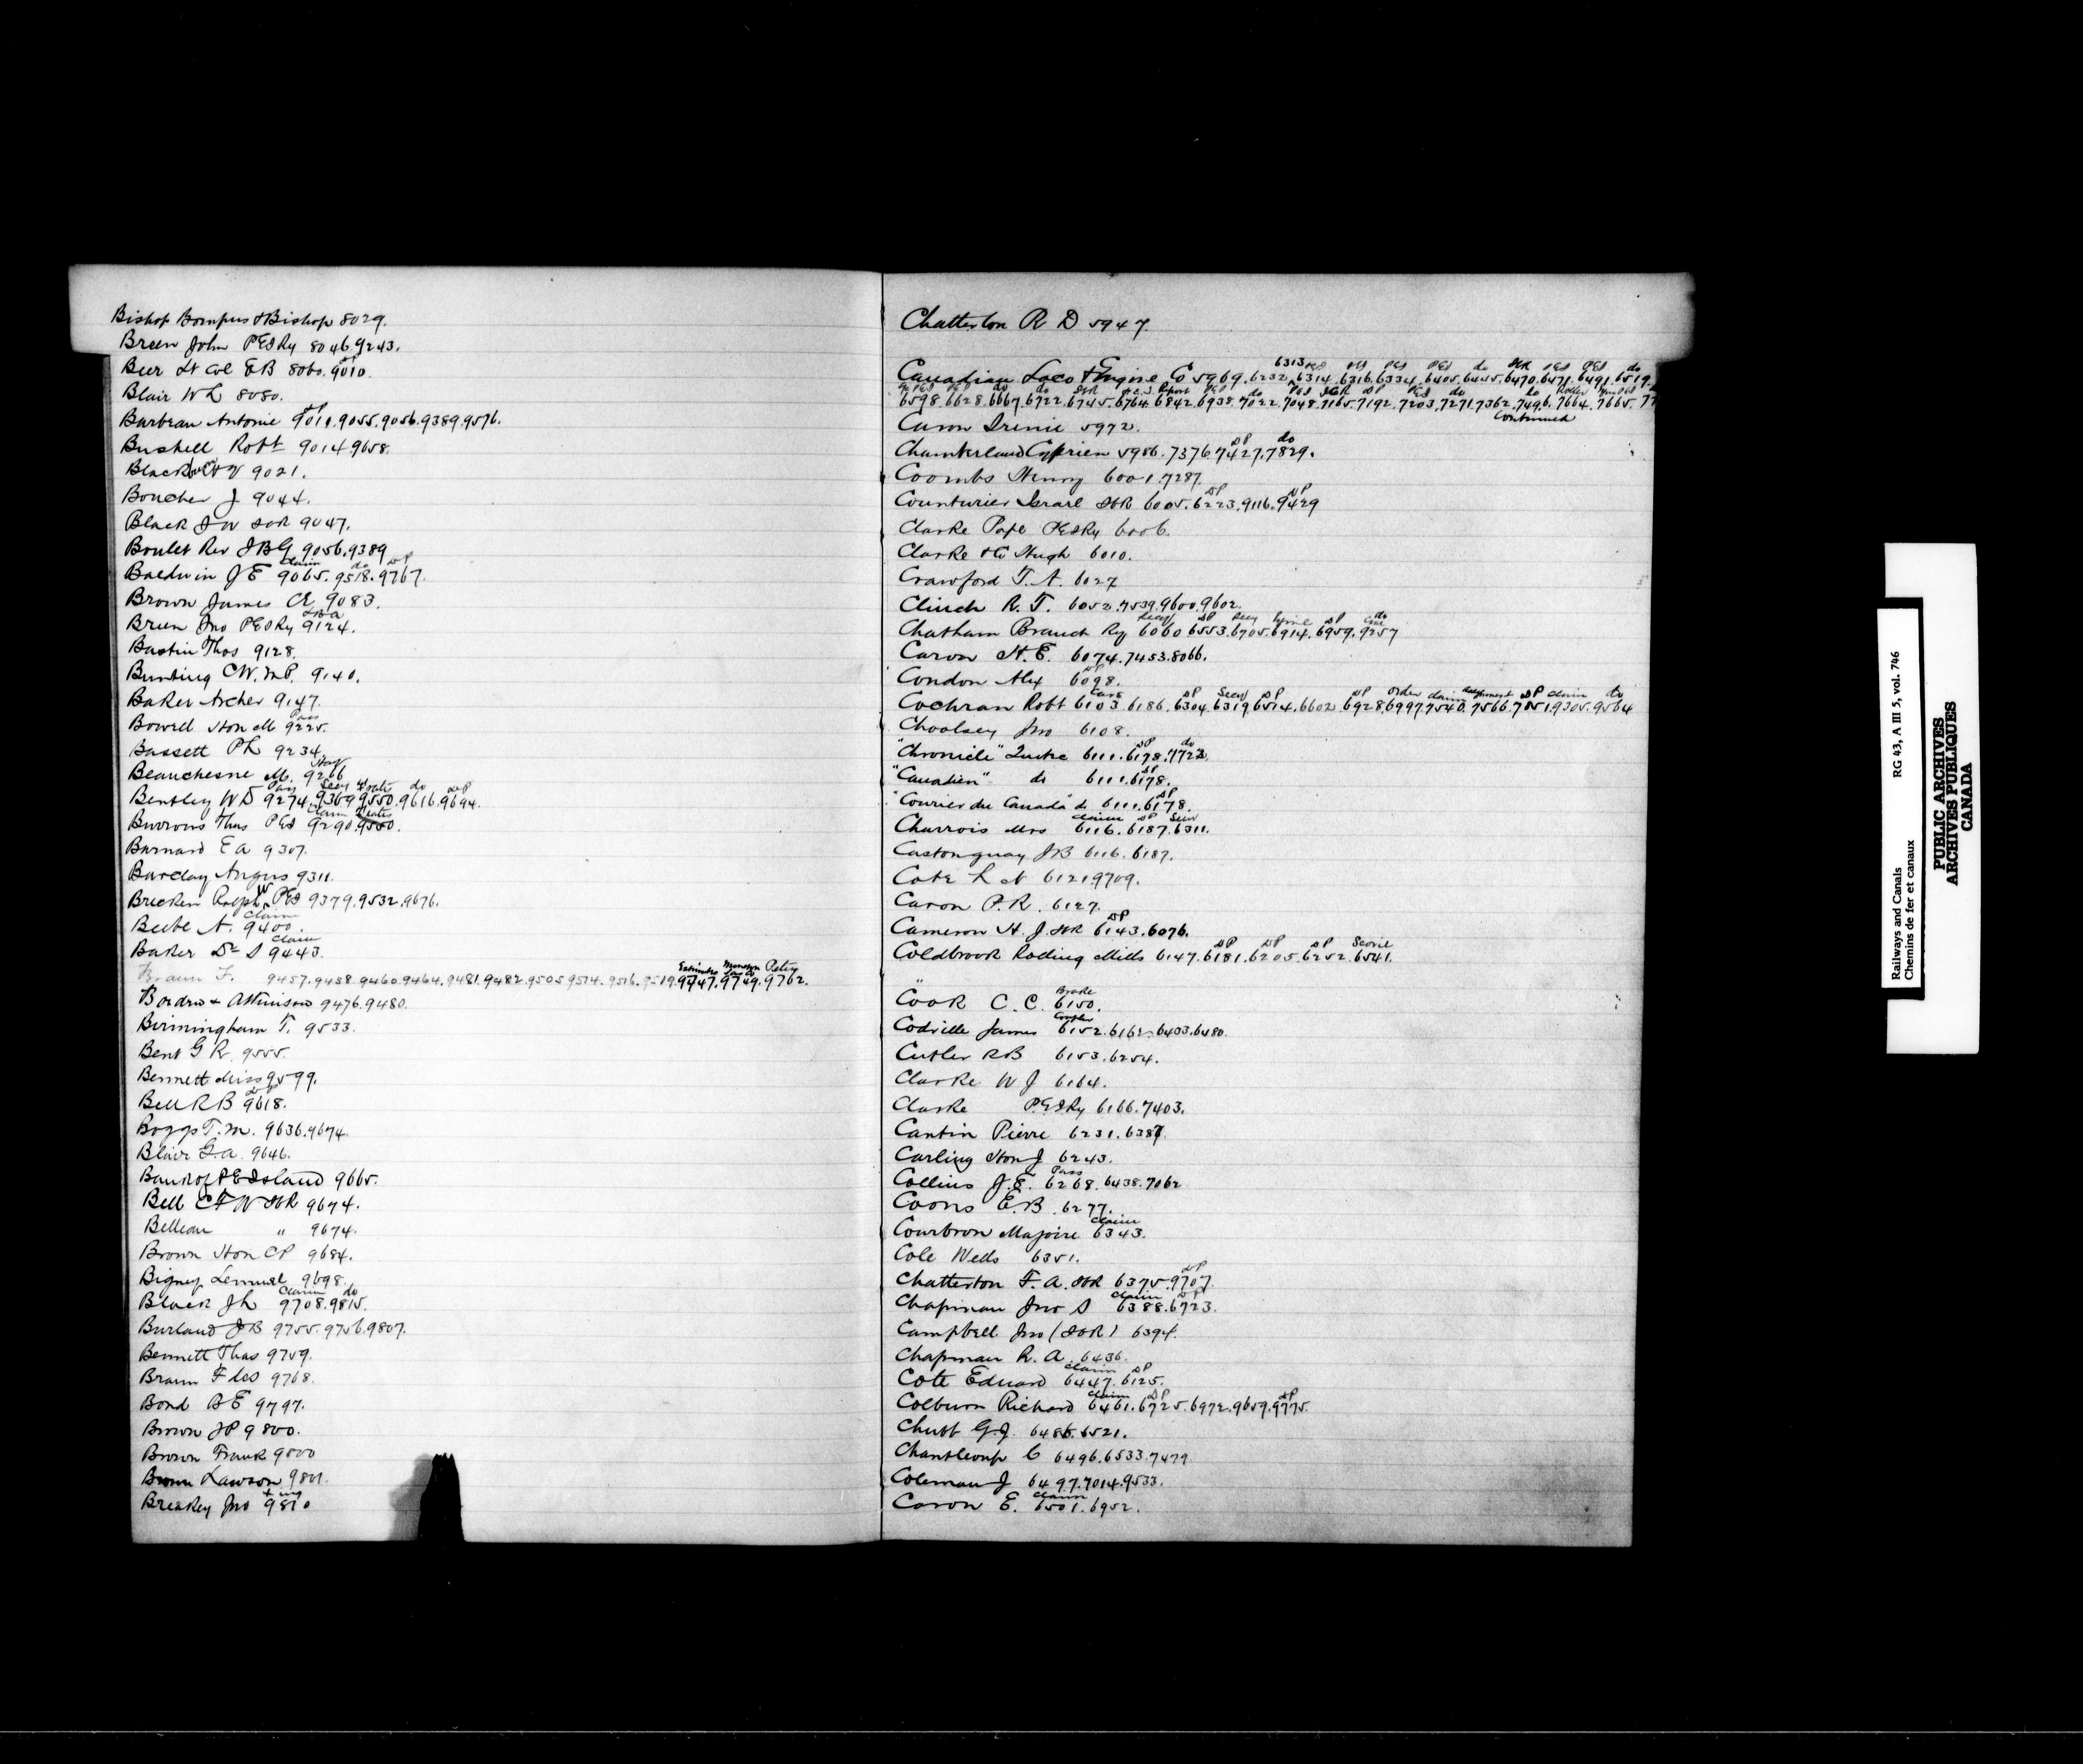 Bishop Bompus & Bishop 8029.
Breen John PEIRy 8046.9243.
Beer Lt Col E B 8060.9010.
Blair W L 8080.
Barbeau Antonie 9011.9055.9056.9389.9576.
Bushell Robt 9014.9658.
Black 9021.
Boucher J 9044.
Black J W ICR 9047.
Boulet Rev J B G 9056.9389
Claim do DP
Baldwin J E 9065.9518.9767.
Brown James A 9083.
Breen Jno PEIRy 9124.
Bastin Thos 9128.
Bunting C W. M.P. 9140.
Baker Archer 9147.
Pass
Bowell Hon M 9225.
Bassett P L 9234
Beauchesne M. 9266
Pass Secy do DP
Bentley W D 9274.9369.9550.9616.9694.
Claim
Burrows Thos PEI 9290.9550.
Barnard E A 9307.
Barclay Angus 9311.
Brecken Ralph W PEI 9379.9532.9676.
Claim
Beebe A. 9400.
Claim
Baker Dr S 9443.
Braun F. 9457.9458.9460.9464.9481.9482.9505.9514.9516.9519.9747.9749.9762.
Borden & Atkinson 9476.9480.
Birmingham T. 9533.
Bent G R. 9555.
Bennett Miss 9599.
DP
Bell R B 9618.
Boggs T. M. 9636.9674.
Blair G. A. 9646.
Bank of PEIsland 9665.
Bell C F W ICR 9674.
Belleau " 9674.
Brown Hon C P 9684.
Bigney Lemuel 9698.
Claim do
Black J L 9708.9815.
Burland J B 9755.9756.9807.
Bennett Thos 9759.
Braun F 9768.
Bond B E 9797.
Brown J P 9800.
Brown Frank 9800
Brown Lawson 9801.
Breakey Jno 9810
Chatterton R D 5947.
6313 PEI PEI PEI PEI do ICR PEI PEI do
Canadian Loco & Engine Co 5969.6232.6314.6316.6334.6405.6445.6470.6471.6491.6519.
6598.6628.6667.6722.6745.6764.6842.6938.7022.7048.7165.7192.7203.7271.7362.7496.7664.7665.77
Continued
Caron Irenie 5972.
DP do
Chamberland Cyprien 5986.7376.7427.7829.
Coombs Henry 6001.7287.
DP DP
Counturier Israel ICR 6005.6223.9116.9429
Clarke Pope PEIRy 6006.
Clarke & Co Hugh 6010.
Crawford T. A. 6027
Clinch R. T. 6052.7539.9600.9602.
Chatham Branch Ry 6060.6553.6705.6914.6959.9257
Caron H. E. 6074.7453.8066.
DP
Condon Alex 6098.
Cochran Robt 6103.6186.6304.6319.6514.6602.6928.6997.7540.7566.7851.9305.9564
Choolsey Jno 6108.
DP do
"Chronicle" Quebec 6111.6178.7723.
DP
"Canadien" do 6111.6178.
DP
"Courier du Canada" do 6111.6178.
Claim DP Secy
Charrois Mrs 6116.6187.6311.
Castonguay J B 6116.6187.
Cote L N 6121.9709.
Caron P. R. 6127.
DP
Cameron H. J. ICR 6143.6076.
DP DP DP
Coldbrook Rolling Mills 6147.6181.6205.6252.6541.
Brake
"Cook C. C. 6150.
Coupler
Codville James 6152.6162.6403.6480.
Cutler R B 6153.6254.
Clarke W J 6164.
Clarke P.E.I.Ry 6166.7403.
Cantin Pierre 6231.6387.
Carling Hon J 6243.
Pass
Collins J. E. 6268.6438.7062
Coons E. B. 6277.
Claim
Courbron Majoire 6343.
Cole Wells 6351.
DP
Chatterton F. A. ICR 6375.9707.
Claim DP
Chapman Jno S 6388.6723.
Campbell Jno (ICR) 6394.
Chapman R. A. 6436.
Claim DP
Cote Edward 6447.6125.
Claim DP DP
Colburn Richard 6461.6725.6972.9659.9775.
Chubb G. J. 6486.6521.
Chanteloup C 6496.6533.7479
Coleman J 6497.7014.9533.
Claim
Caron E. 6501.6952.
Railways and Canals RG 43, A III 5, vol. 746
Chemins de fer et canaux
PUBLIC ARCHIVES
ARCHIVES PUBLIQUES
CANADA